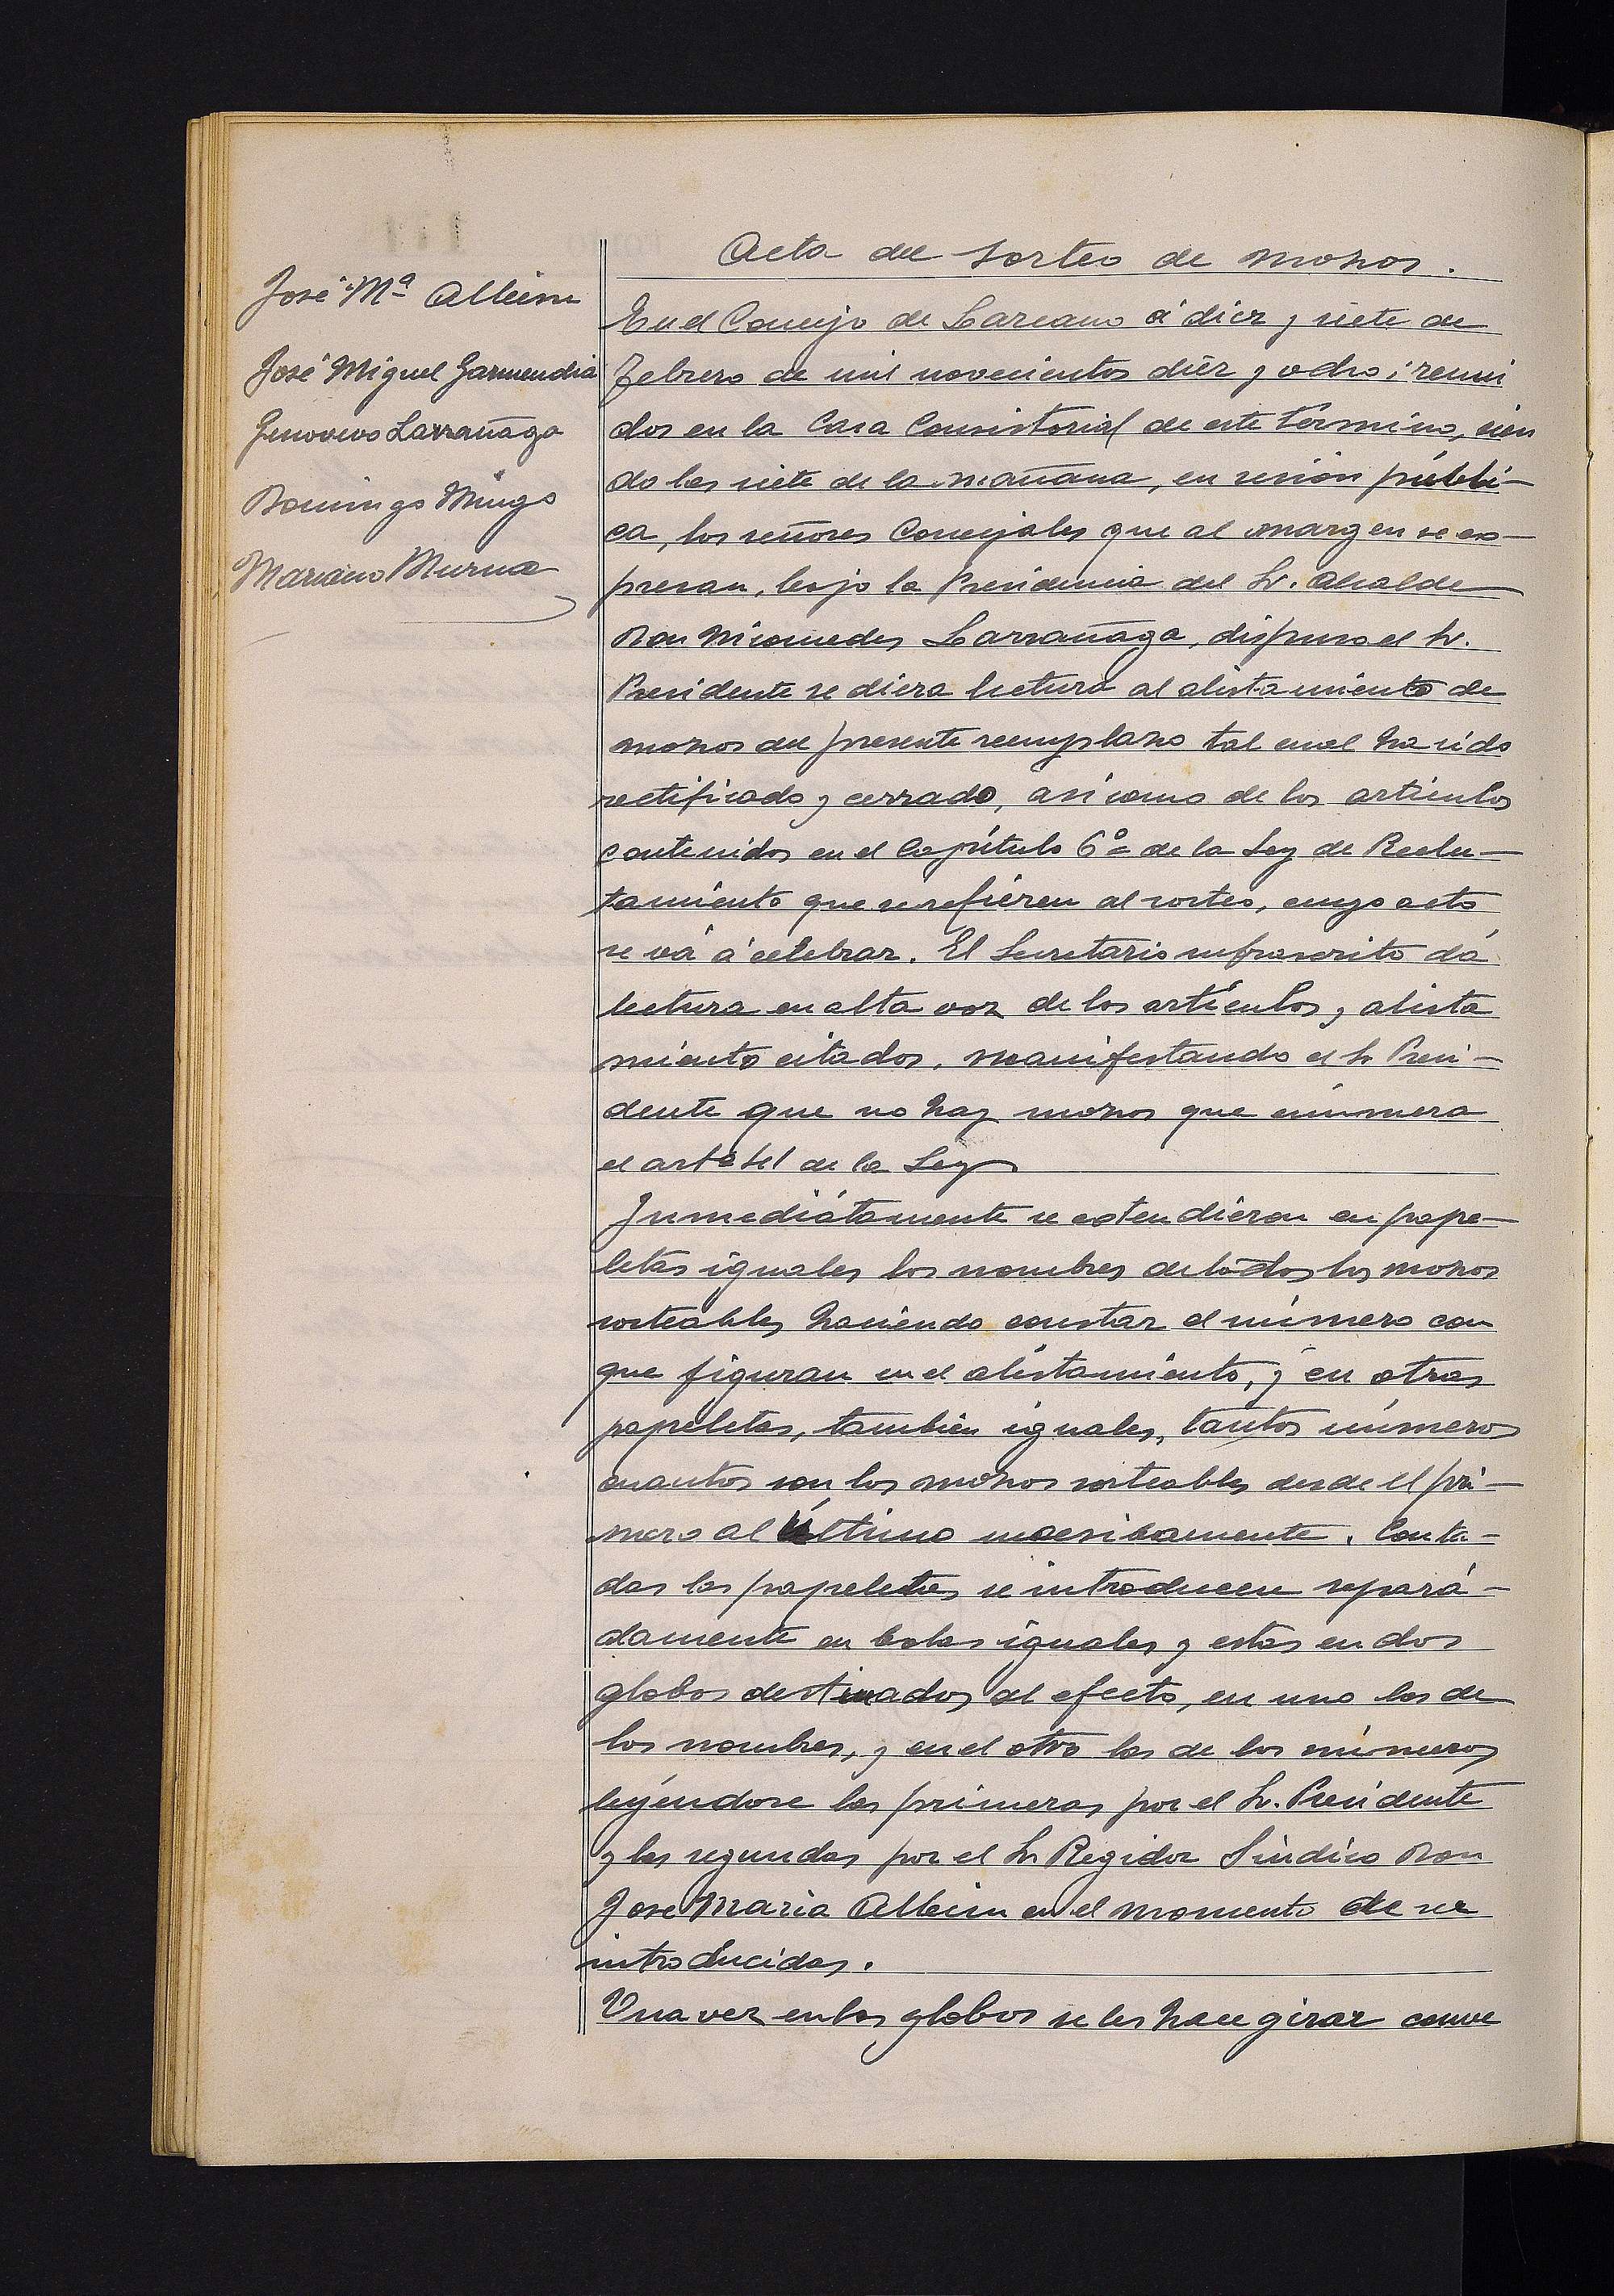 Acta del sorteo de mozos.
José Mª Albisu
José Miguel Garmendia
Genoveso Larrañaga
Domingo Mugo
Mariano Murua
En el Concejo de Lazcano á diez y siete de
Febrero de mil novecientos diez y ocho; reuni
dos en la Casa Consistorial de este término, sien
do las siete de la mañana, en sesión públi-
ca, los señores Concejales que al margen se ex-
presan, bajo la Presidencia del Sr. Alcalde
Don Nicomedes Larrañaga, dispuso el Sr.
Presidente se diera lectura al alistamiento de
mozos del presente reemplazo tal cual ha sido
rectificado y cerrado, asi como de los artículos
contenidos en el Capítulo 6º de la Ley de Reclu-
tamiento que se refieren al sorteo, cuyo acto
se vá á celebrar. El Secretario infrascrito dá
lectura en alta voz de los artículos y alista
miento citados, manifestando el Sr Presi-
dente que no hay mozos que enumera
el artº de la Ley
Inmediátamente se extendieron en pape-
letas iguales los nombres de todos los mozos
sorteables haciendo constar el número con
que figuran en el alistamiento, y en otras
papeletas, tambien iguales, tantos números
cuantos son los mozos sorteables desde el pri-
mero al último sucesibamente. Conta-
das las papeletas se introducen separá-
damente en bolas iguales y estas en dos
globos destinados al efecto, en uno las de
los nombres, y en el otro las de los números
leyéndose las primeras por el Sr. Presidente
y las segundas por el Sr Regidor Síndico Don
Jose Maria Albisu en el momento de ser
introducidas.
Una vez en los globos se les hace girar conve